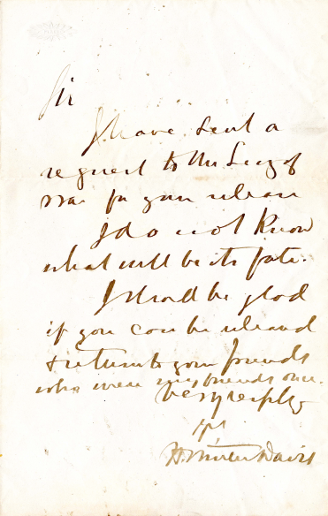 Sir
I have sent a
request to the Secy of
War for your release
I do not know
what will be its fate.
I shall be glad
if you can be released
& return to your friends
who were my friends once.
Very respfly
Yrs
H. Winter Davis